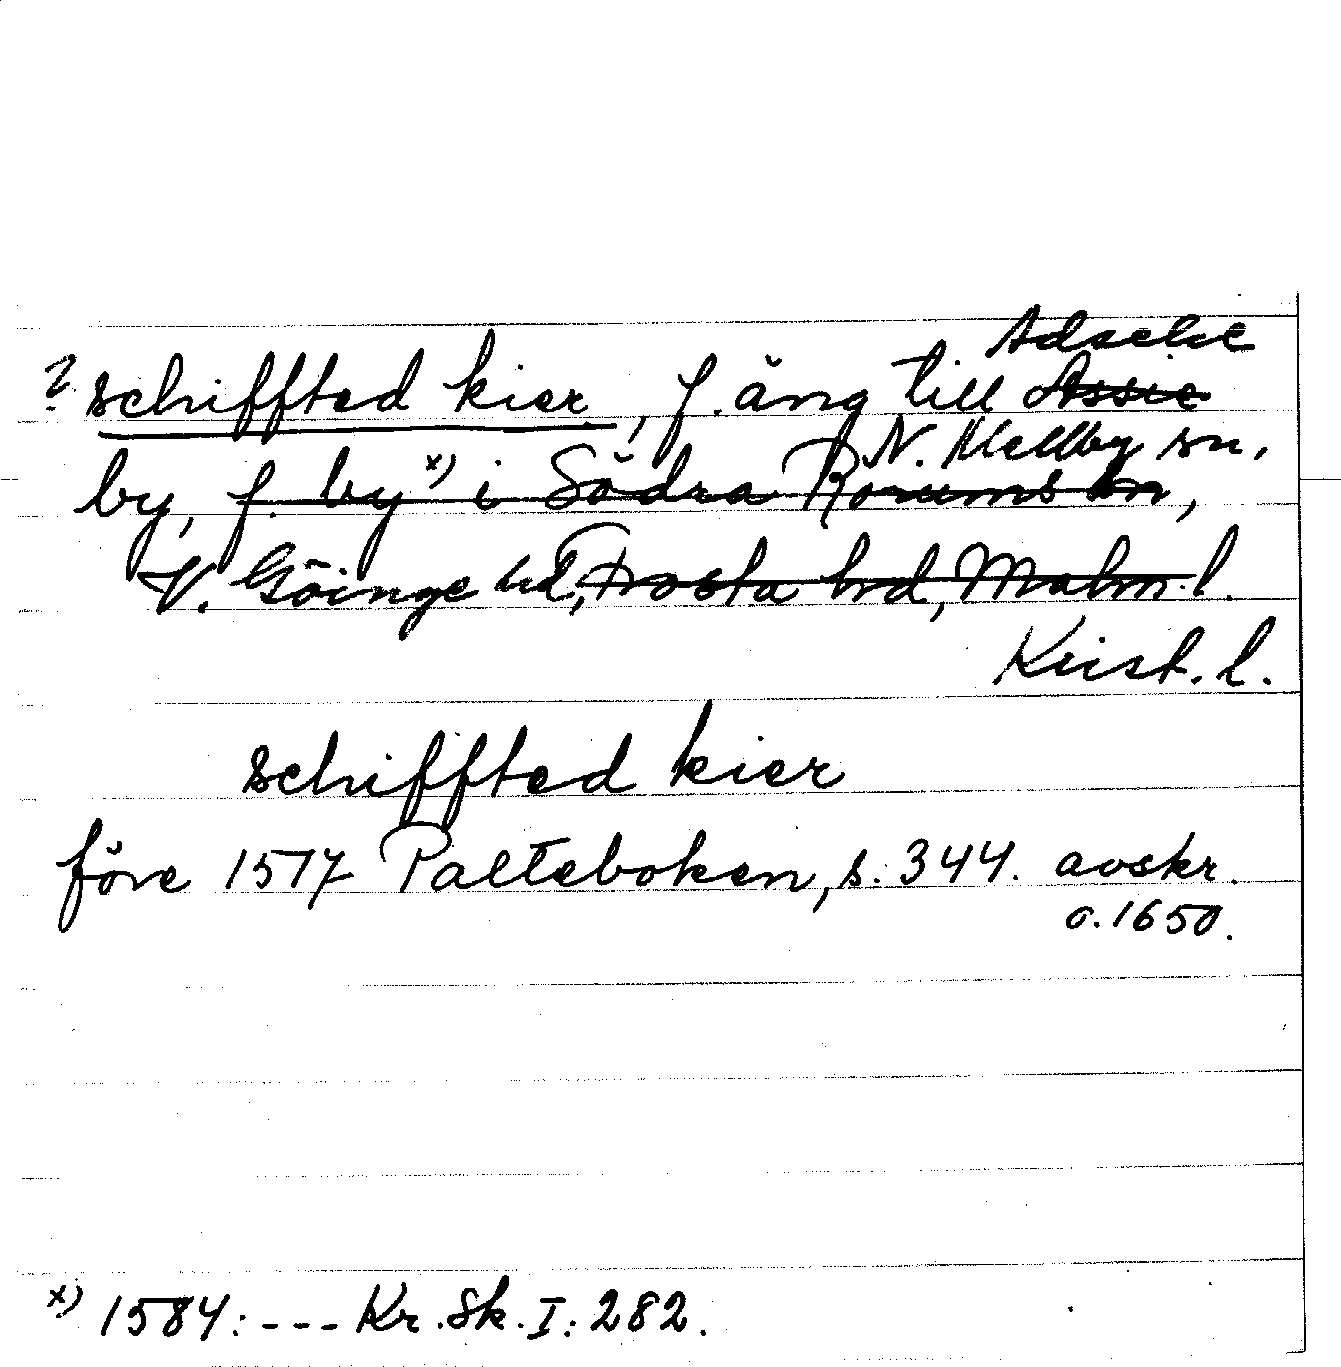 Adseke
? schiffted kier, f. äng till Assie
N. Mellby sn,
by, f. by x) i Södra Rörums sn,
V. Göinge hd, Frosta hrd, Malm. l.
Krist. l.
schiffted kier
före 1517 Palteboken, s. 344. avskr.
o. 1650.
x) 1584: --- Kr. Sk. I: 282.